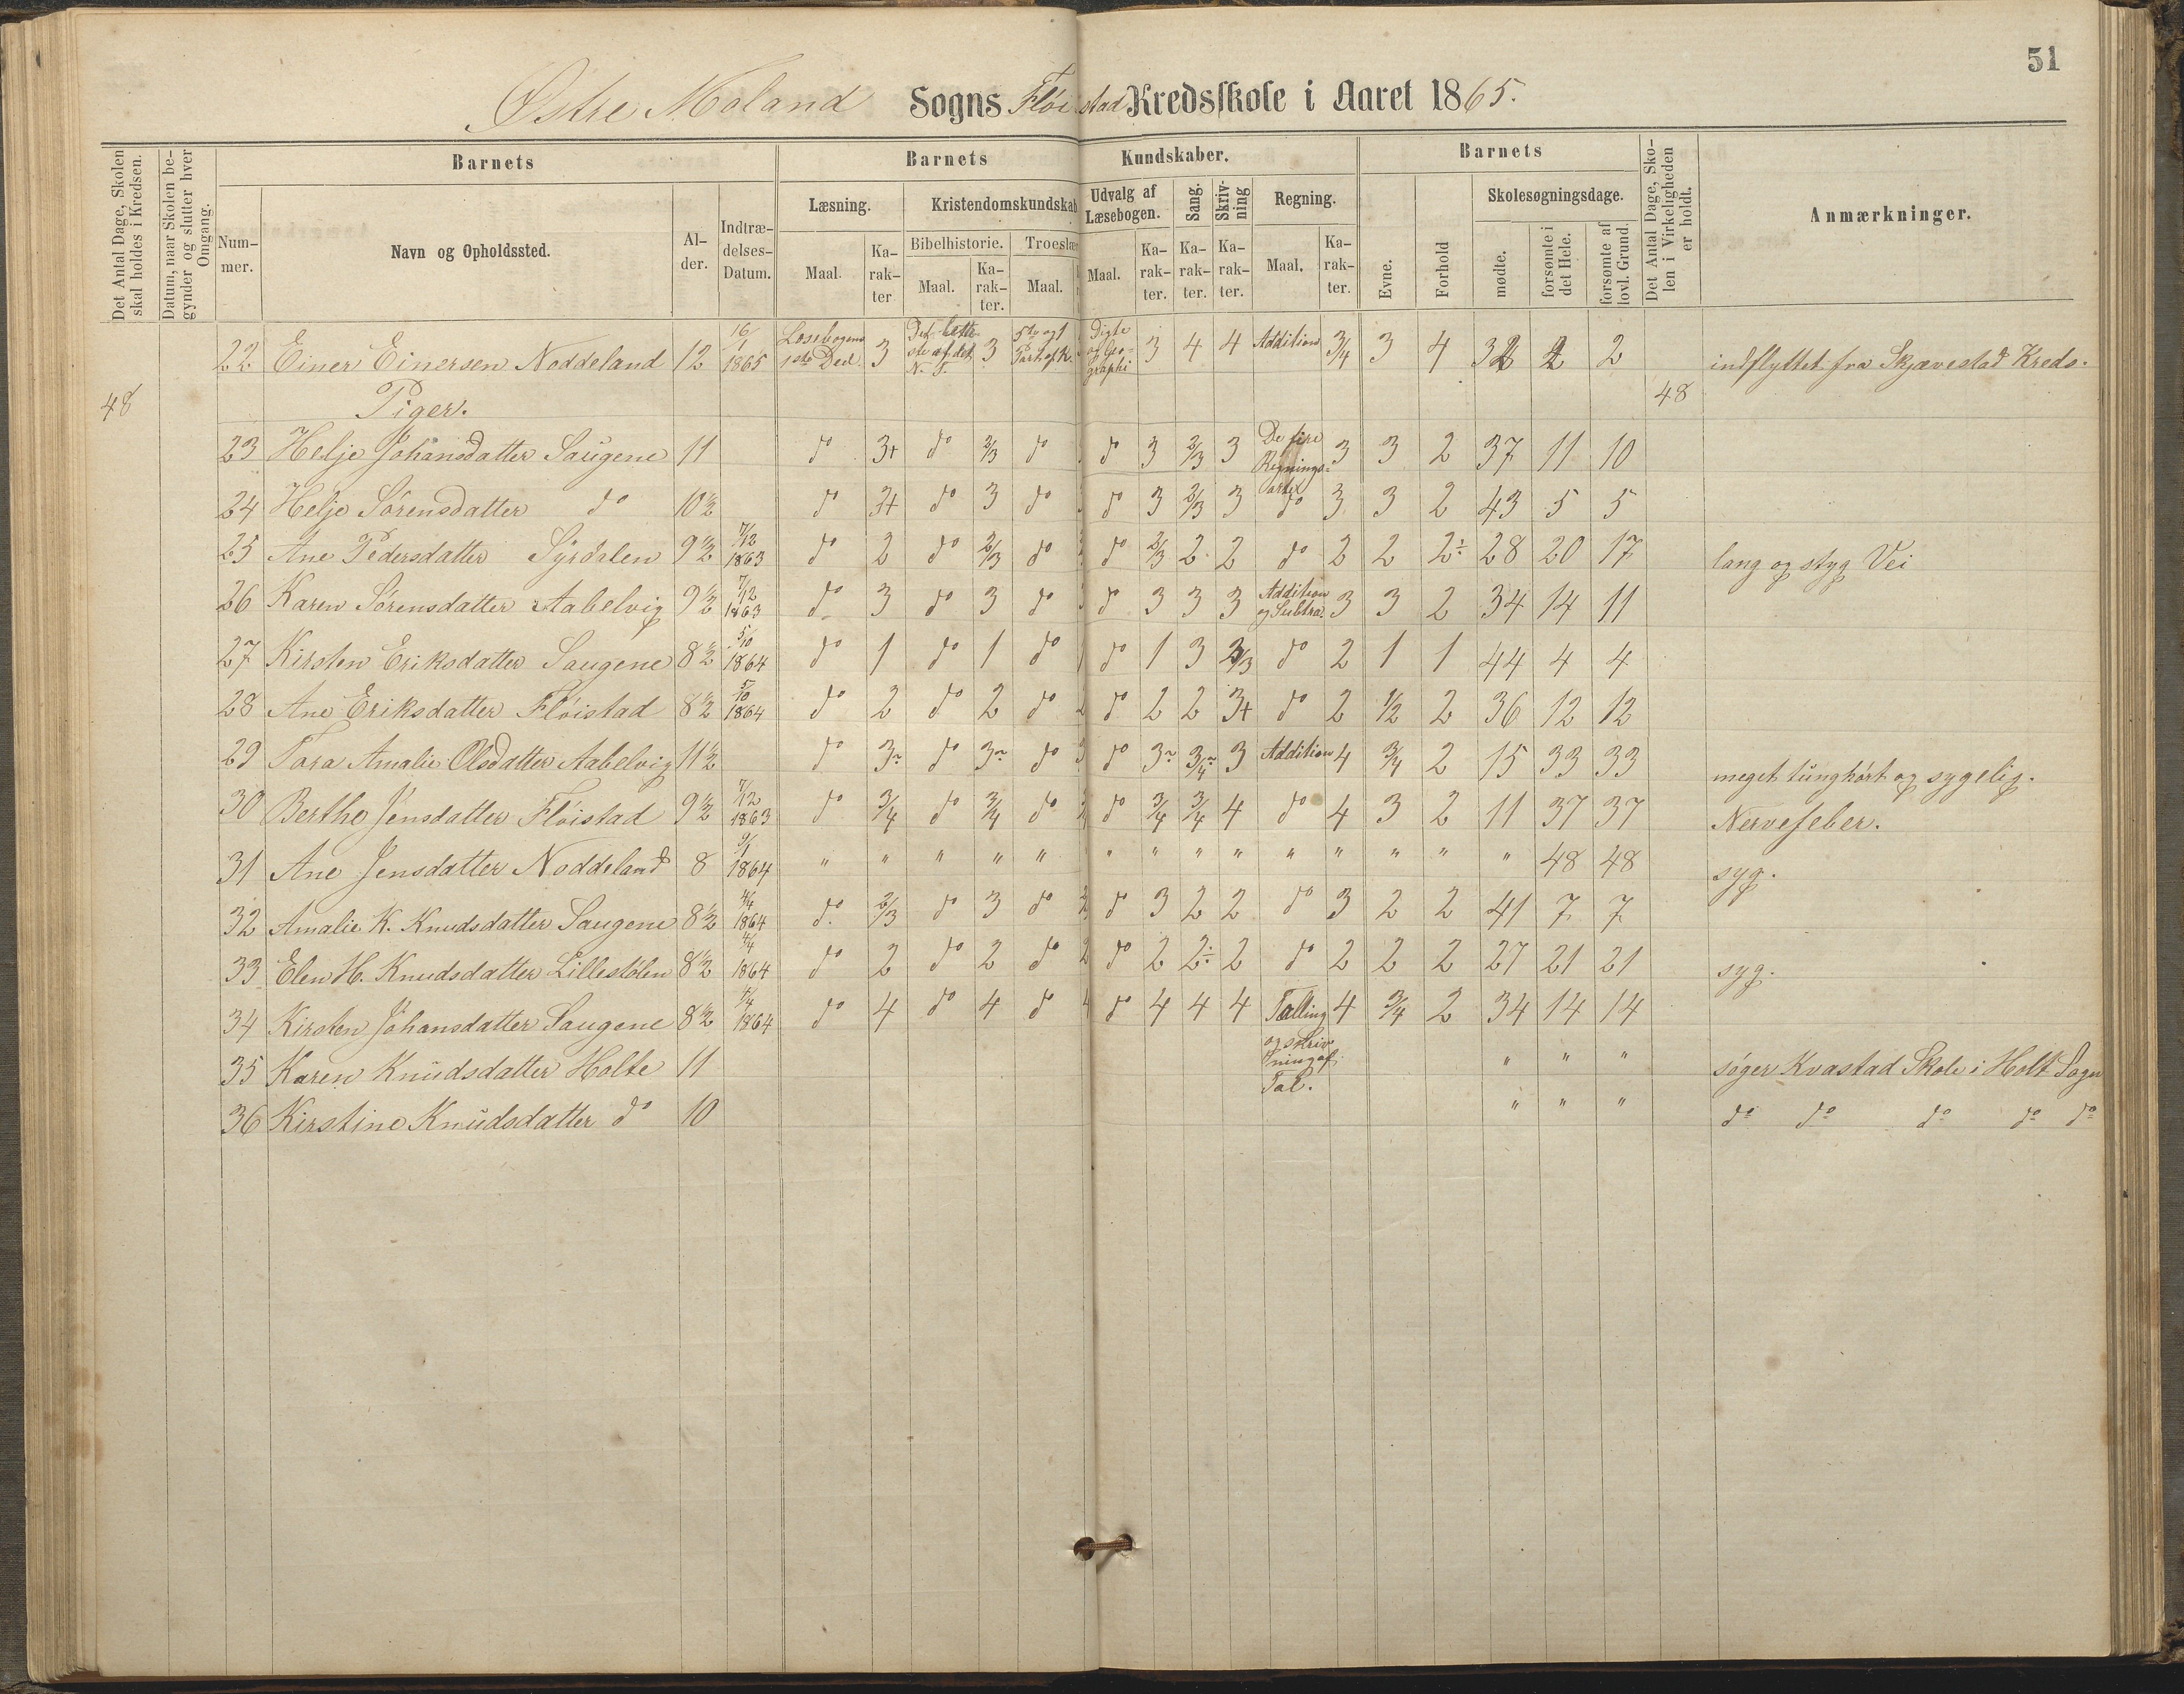 51
Østre Moland Sogns Fløistad Kredsskole i Aaret 1865.
Det Antal Dage, Skolen skal holdes i Kredsen.
Datum, naar Skolen begynder og slutter hver Omgang.
Barnets
Barnets Kundskaber.
Barnets
Det Antal Dage, Skolen i Virkeligheden er holdt.
Anmærkninger.
Nummer.
Navn og Opholdssted.
Alder.
Indtrædelses-Datum.
Læsning.
Kristendomskundskab
Udvalg af Læsebogen.
Sang.
Skrivning
Regning.
Evne.
Forhold
Skolesøgningsdage.
Bibelhistorie.
Troeslær
Maal. Karakter Maal. Karakter. Maal. Maal. Karakter. Karakter. Karakter. Maal. Karakter.
mødte. forsømte i det Hele. forsømte af lovl. Grund.
22 Einer Einersen Noddeland 12 16/1 1865 Læsebogens 1ste Del. 3 Det lette- ste af det N. T. 3 5te og 1 Part af K. Digte og Geographi 3 4 4 Addition 3/4 3 4 32 2 2 indflyttet fra Skjævestad Kreds.
48 Piger. 48
23 Helje Johansdatter Saugene 11 do 3+ do 2/3 do do 3 2/3 3 De fire Regningsarter 3 3 2 37 11 10
24 Helje Sørensdatter do 10½ do 3+ do 3 do do 3 2/3 3 do 3 3 2 43 5 5
25 Ane Pedersdatter Syrdalen 9½ 7/12 1863 do 2 do 2/3 do do 2/3 2 2 do 2 2 2÷ 28 20 17 lang og styg Vei
26 Karen Sørensdatter Aabelvig 9½ 7/12 1863 do 3 do 3 do do 3 3 3 Addition og Subtra. 3 3 2 34 14 11
27 Kirsten Eriksdatter Saugene 8½ 5/10 1864 do 1 do 1 do do 1 3 2/3 do 2 1 1 44 4 4
28 Ane Eriksdatter Fløistad 8½ 5/10 1864 do 2 do 2 do 2 do 2 2 3+ do 2 1/2 2 36 12 12
29 Tara Amalie Olsdatter Aabelvig 11½ do 3~ do 3~ do 3 do 3~ 3/4~ 3 Addition 4 3/4 2 15 33 33 meget tunghørt og sygelig.
30 Berthe Jensdatter Fløistad 9½ 7/12 1863 do 3/4 do 3/4 do do 3/4 3/4 4 do 4 3 2 11 37 37 Nervefeber.
31 Ane Jensdatter Noddeland 8 9/1 1864 " " " " " " " " " " " " " " 48 48 syg.
32 Amalie K. Knudsdatter Saugene 8½ 4/4 1864 do. 2/3 do 3 do do 3 2 2 do 3 2 2 41 7 7
33 Elen H. Knudsdatter Lillestølen 8½ 4/4 1864 do 2 do 2 do 2 do 2 2÷ 2 do 2 2 2 27 21 21 syg.
34 Kirsten Johansdatter Saugene 8½ 4/4 1864 do 4 do 4 do 4 do 4 4 4 Tælling og Skrivning af Tal. 4 3/4 2 34 14 14
35 Karen Knudsdatter Holte 11 " " " søger Kvastad Skole i Holt Sogn
36 Kirstine Knudsdatter do 10 " " " do do do do do